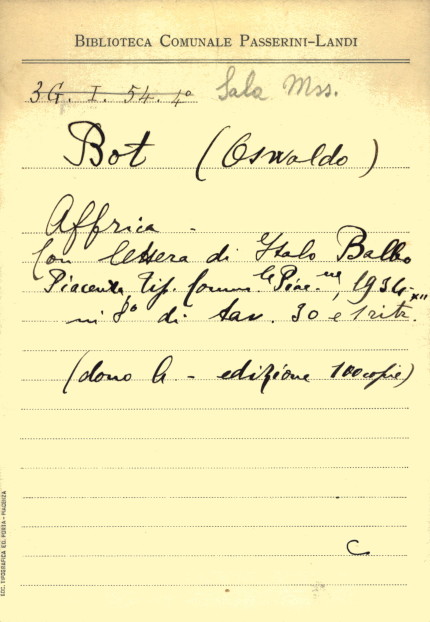 BIBLIOTECA COMUNALE PASSERINI-LANDI
3G. I. 54. 4º Sala Mss.
Bot (Oswaldo)
Affrica -
Con lettera di Italo Balbo
Piacenza, Tip. Comm.le Piac.na, 1934 XII
in 8º di tav. 30 e 1 ritr.
(dono A. - edizione 100 copie)
C
SOC. TIPOGRAFICA ED. PORTA - PIACENZA